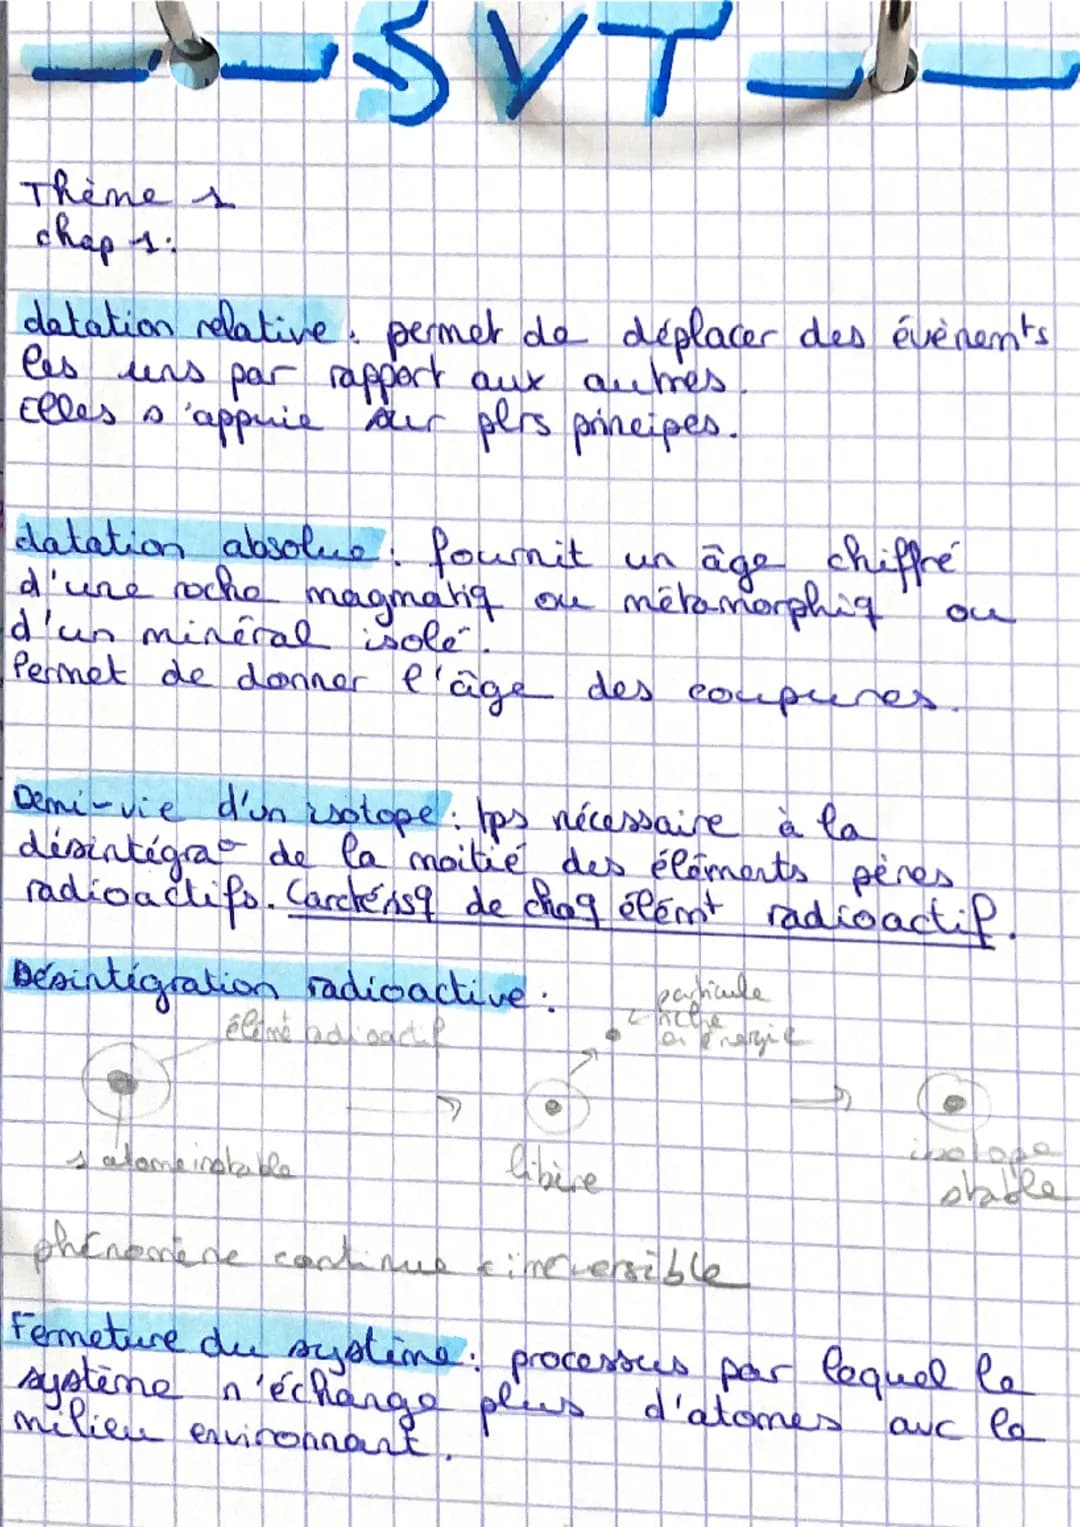 SVT
Thème 1
chap 1:
datation relative : permet de déplacer des évènemts
les uns par rapport aux autres.
Elles s'appuie sur plrs principes.
datation absolue : fournit un âge chiffré
d'une roche magmatiq ou métamorphiq ou
d'un minéral isolé.
Permet de donner l'âge des coupures.
Demi-vie d'un isotope : tps nécessaire à la
désintégra° de la moitié des éléments pères
radioactifs. Carctérisq de chaq élémt radioactif.
Désintégration radioactive :
particule
riche
en énergie
élémt radioactif
1 atome instable
libère
isotope
stable
phénomène continue & irréversible
Fermeture du système : processus par lequel le
système n'échange plus d'atomes avc le
milieu environnant.